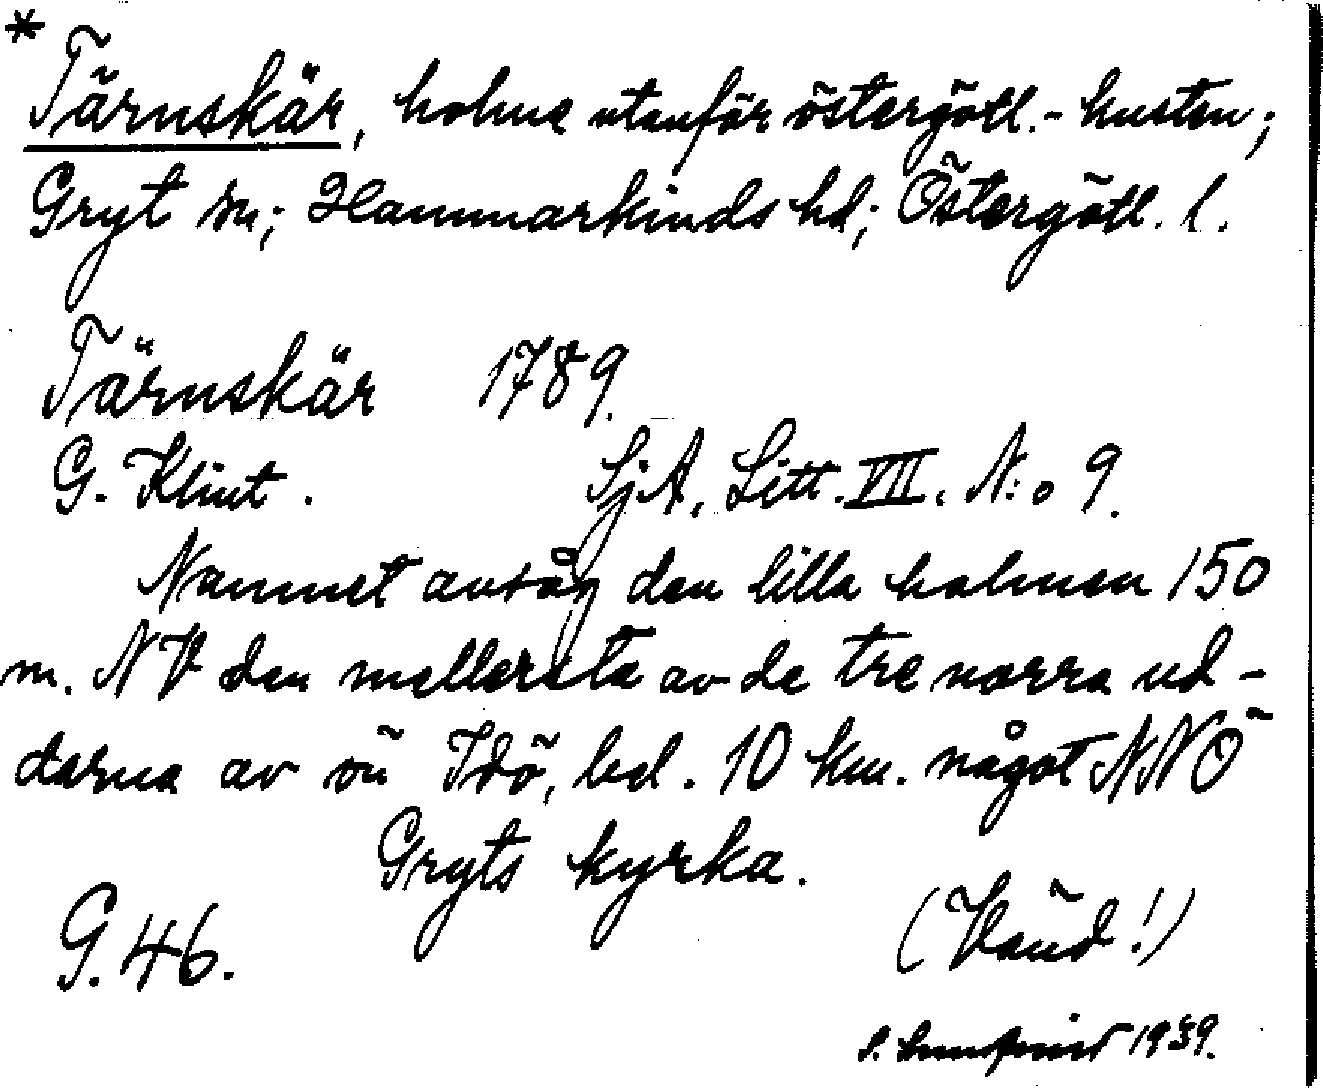 *
Tärnskär, holme utanför östergötl.-kusten;
Gryt sn; Hammarkinds hd; Östergötl. l.
Tärnskär 1789.
G. Klint. SjA, Litt. VII. N:o 9.
Namnet avsåg den lilla holmen 150
m. NV den mellersta av de tre norra ud-
darna av ön Idö, bel. 10 km. något NNÖ
Gryts kyrka.
G. 46. (Vänd!)
1939.